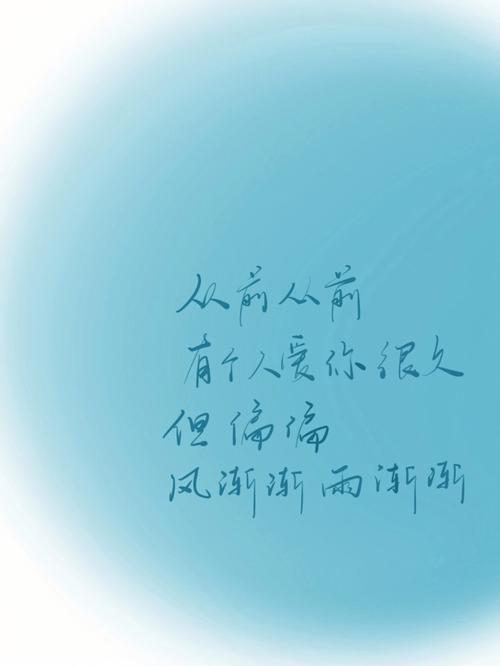 从前从前
有个人爱你很久
但偏偏
风渐渐雨渐渐